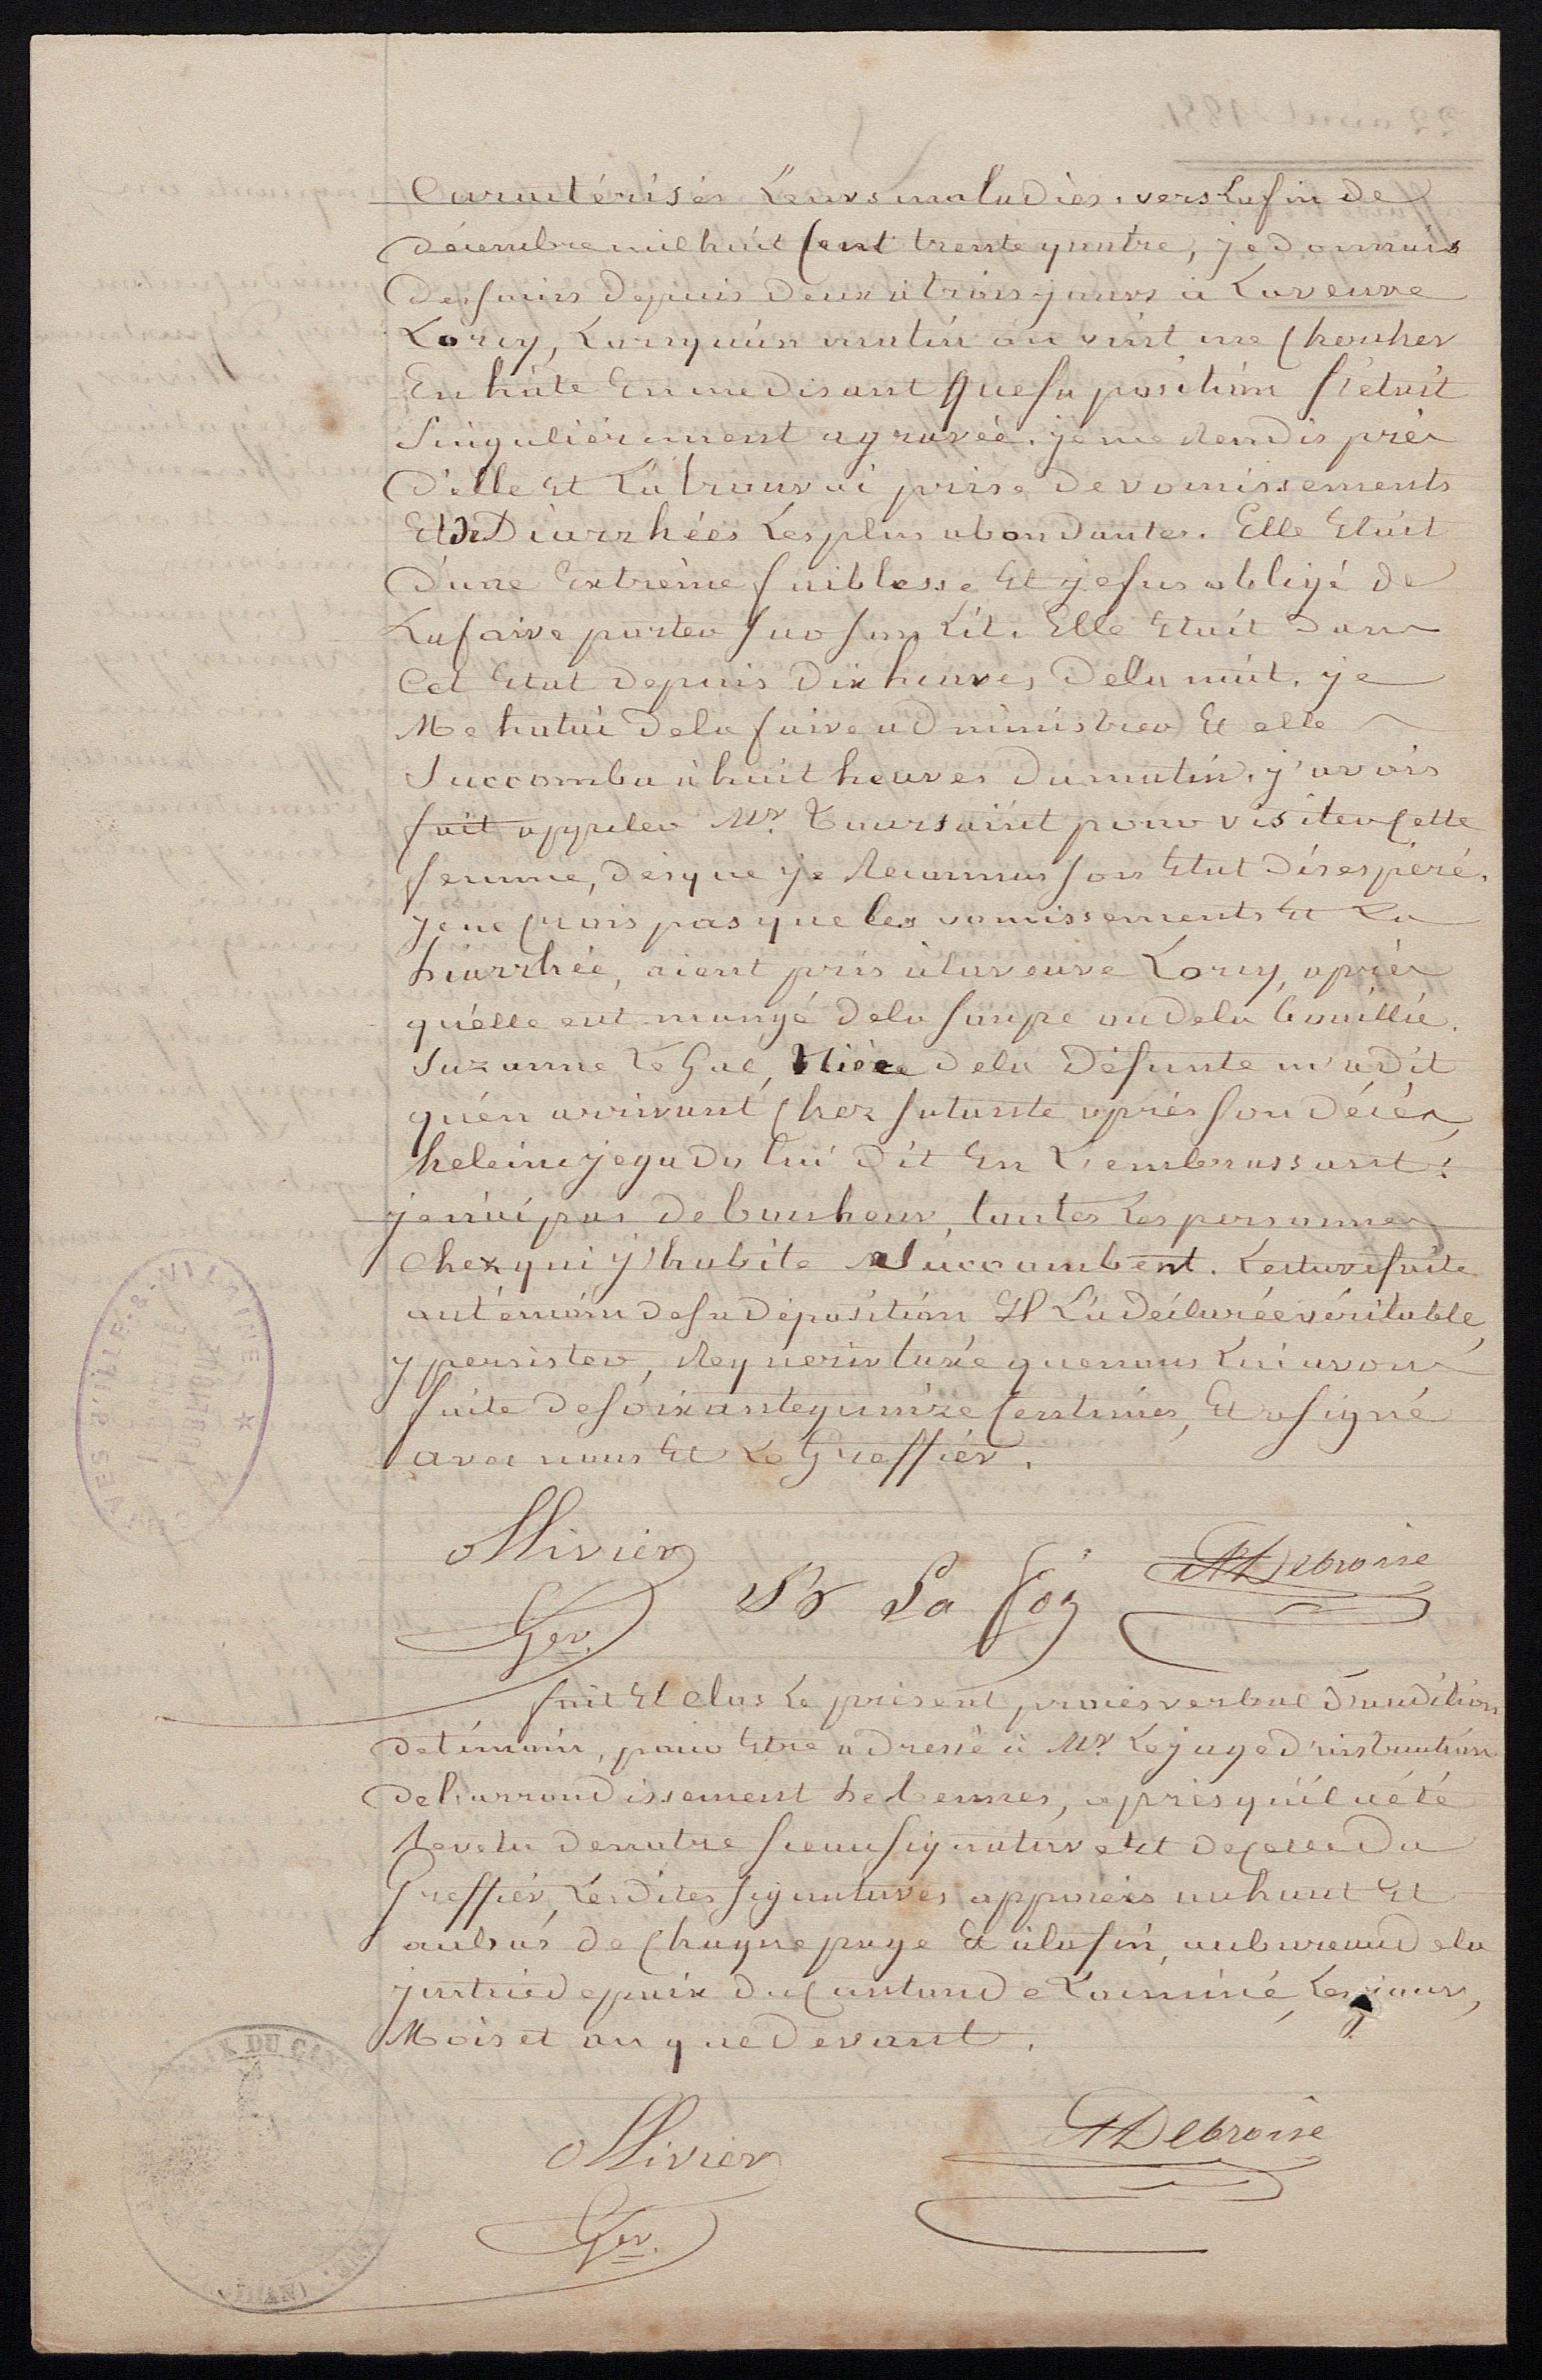 Caractérisér Leurs maladiés. vers La fin de
décembre mil huit Cent trente quatre, je donnais
des soins depuis deux à trois jours à La veuve
Lorcy, Lorsqu'un matin on vint me Chercher
En hâte En me disant que sa position S'était
Singuliérement agravée. je me rendis près
d'elle Et La trouvai prise de vomissements
Et de Diarrhées Les plus abondantes. Elle Etait
d'une Extrême faiblesse Et je fus obligé de
La faire porter sur son Lit. Elle Etait dans
Cet Etat depuis dix heures de la nuit. je
Me hatai de la faire administrer Et elle
Succomba à huit heures du matin. j'avais
fait appeler Mr. Toursaint pour visiter Cette
femme, dès que je reconnus son Etat désespéré.
je ne Crois pas que les vomissements Et La
diarrhée, aient pris à la veuve Lorcy, après
qu'elle eut mangé de la soupe ou de la bouillie.
Suzanne Le Gal, Nièce de la défunte m'a dit
qu'en arrivant Chez sa tante après son décès,
heleine jegado lui dit En L'embrassant:
je n'ai pas de bonheur, toutes Les personnes
Chez qui j'habite Succombent. Lecture faite
au témoin de sa déposition Il L'a déclarée véritable
y persister, Requerir taxe que nous Lui avons
faite de soixante quinze Centimes, Et a signé
avec nous Et Le Greffier.
ollivier
Ger.
Pr Le Loj
AADebroise
fait Et clos Le présent procès verbal d'audition
de témoin, pour Etre adressé à Mr. Le juge d'instruction
de l'arrondissement de Rennes, après qu'il a été
revetu de notre sceau signature Et de celle du
Greffier, Lesdites signatures apposées au haut Et
au bas de Chaque page Et à la fin, au bureau de la
justice de paix du Canton de Locminé, Les jour,
Mois et an que devant.
ollivier
Ger.
AADebroise